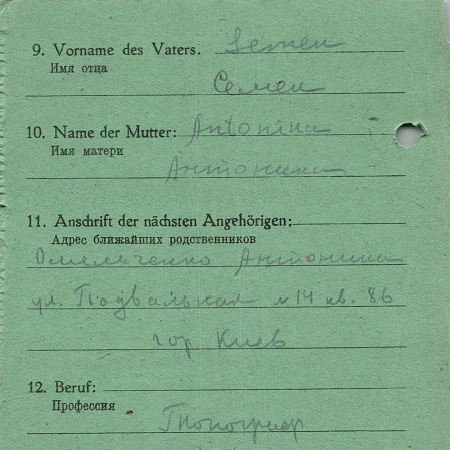 9. Vorname des Vaters. Semen
Имя отца
Семен
10. Name der Mutter: Antonina
Имя матери
Антонина
11. Anschrift der nächsten Angehörigen:
Адрес ближайших родственников
Омельченко Антонина
ул. Подвальная №14 кв. 86
гор Киев
12. Beruf:
Профессия
Топограф